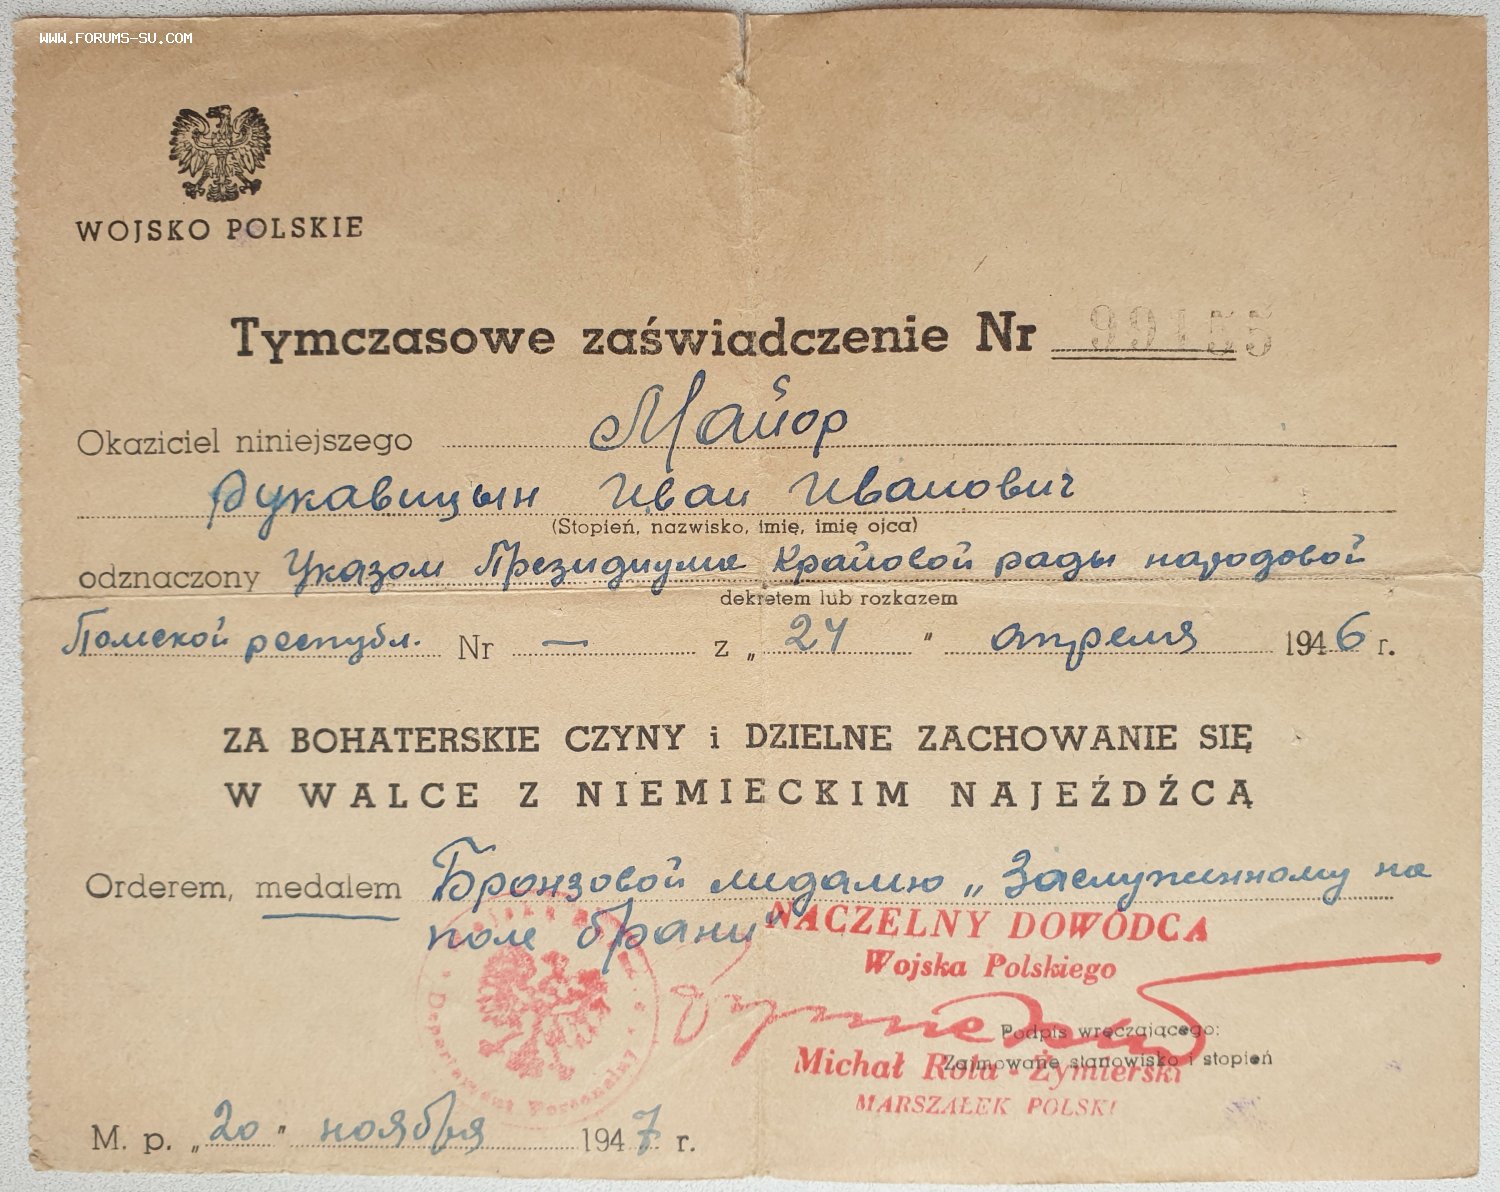 WWW.FORUMS-SU.COM
WOJSKO POLSKIE
Tymczasowe zaświadczenie Nr 99155
Okaziciel niniejszego Майор
Рукавицын Иван Иванович
(Stopień, nazwisko, imię, imię ojca)
odznaczony Указом Президиума Крайовой рады народовой
dekretem lub rozkazem
Польской республ. Nr — z „ 24 " апреля 1946 r.
ZA BOHATERSKIE CZYNY i DZIELNE ZACHOWANIE SIĘ
W WALCE Z NIEMIECKIM NAJEŹDŹCĄ
Orderem, medalem Бронзовой медалью „Заслуженному на
поле брани"
NACZELNY DOWÓDCA
Wojska Polskiego
Podpis wręczającego:
Zajmowane stanowisko i stopień
Michał Rola-Żymierski
MARSZAŁEK POLSKI
Departament Personalny
M. p. „20" ноября 1947 r.